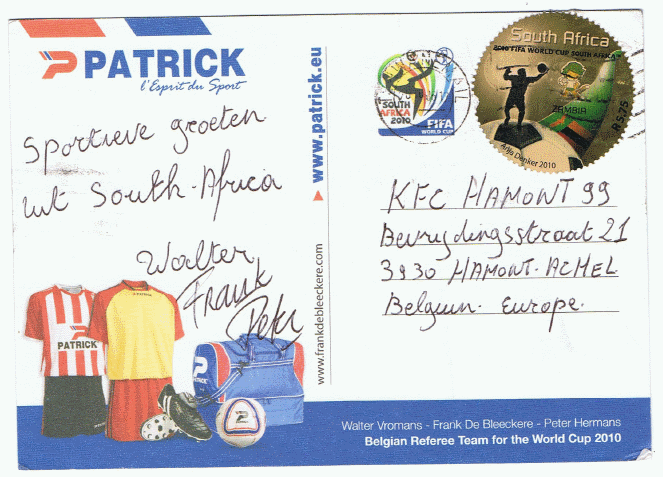 PATRICK
l'Esprit du Sport
Sportieve groeten
uit South-Africa
Walter
Frank
Peter
PATRICK
www.patrick.eu
www.frankdebleeckere.com
SOUTH
AFRICA
2010
FIFA
WORLD CUP
South Africa
2010 FIFA WORLD CUP SOUTH AFRICA
ZAMBIA
R5.75
Anja Denker 2010
KFC HAMONT 99
Bevrijdingsstraat 21
3930 HAMONT-ACHEL
Belgium. Europe.
Walter Vromans - Frank De Bleeckere - Peter Hermans
Belgian Referee Team for the World Cup 2010